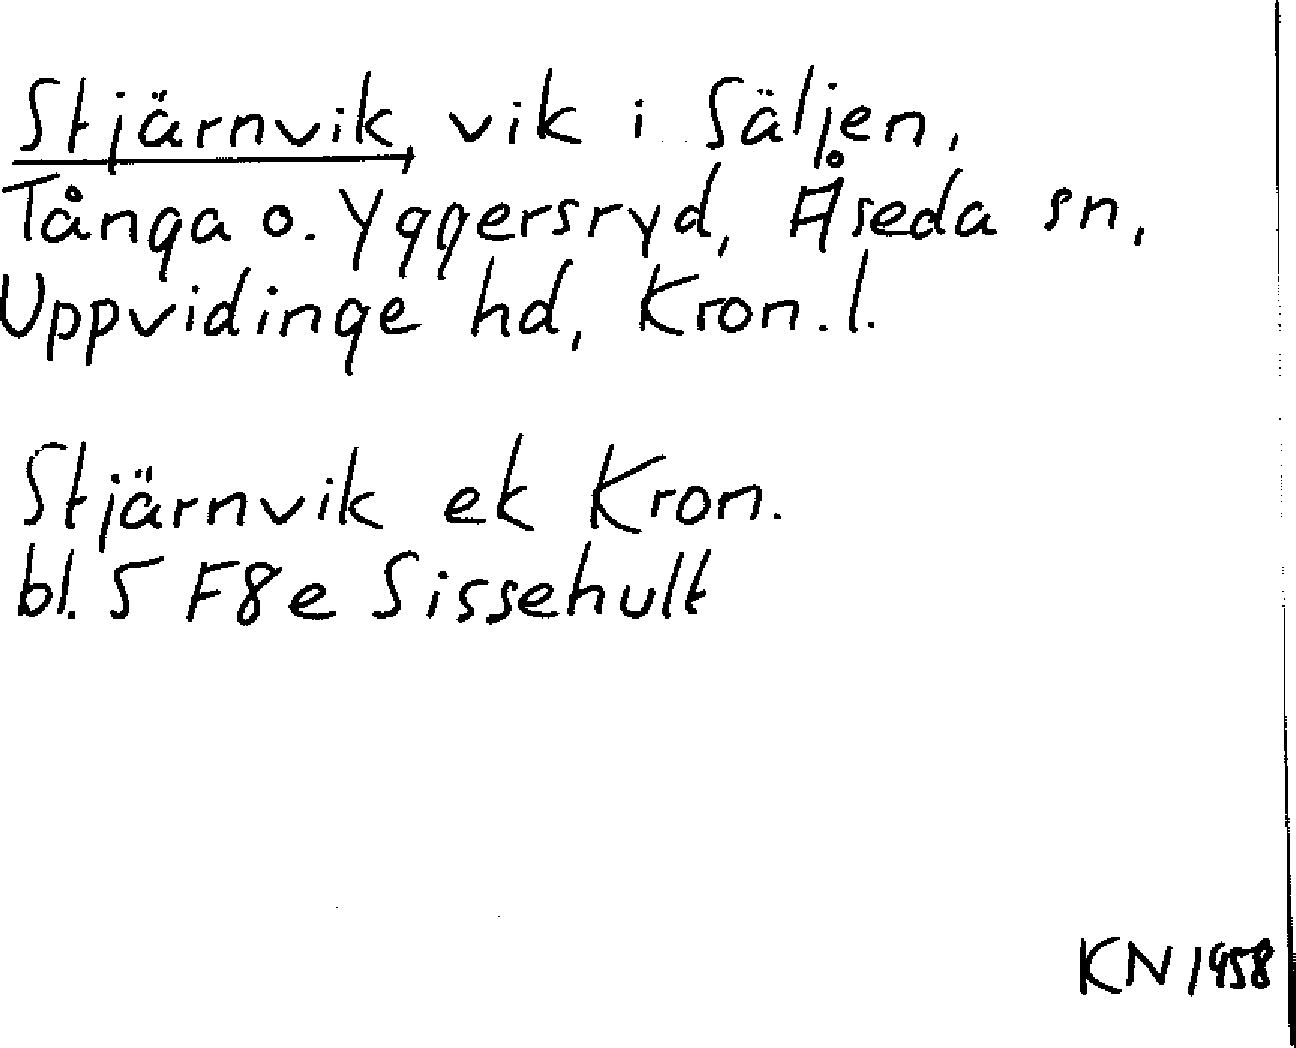 Stjärnvik, vik i Säljen,
Tånga o. Yggersryd, Åseda sn,
Uppvidinge hd, Kron. l.
Stjärnvik ek Kron.
bl. 5 F8e Sissehult
KN 1958